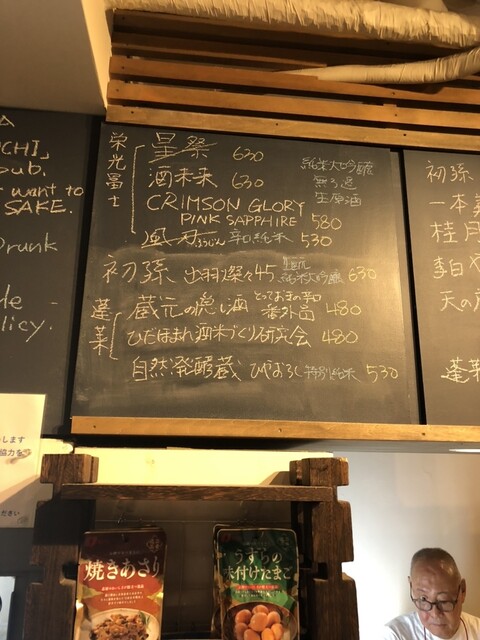 CHI」
pub.
want to
SAKE.
Drunk
licy.
栄光冨士
星祭 630
酒未来 630
純米大吟醸
無ろ過
生原酒
CRIMSON GLORY
PINK SAPPHIRE 580
風刃 辛口純米 530
初孫 出羽燦々45 生酛 純米大吟醸 630
蓬莱
蔵元の隠し酒 とっておきの辛口 番外品 480
ひだほまれ酒米づくり研究会 480
自然発酵蔵 ひやおろし 特別純米 530
初孫
一本
桂月
李白 や
天の
蓬莱
します
協力を
ださい
焼きあさり
うずらの
味付けたまご